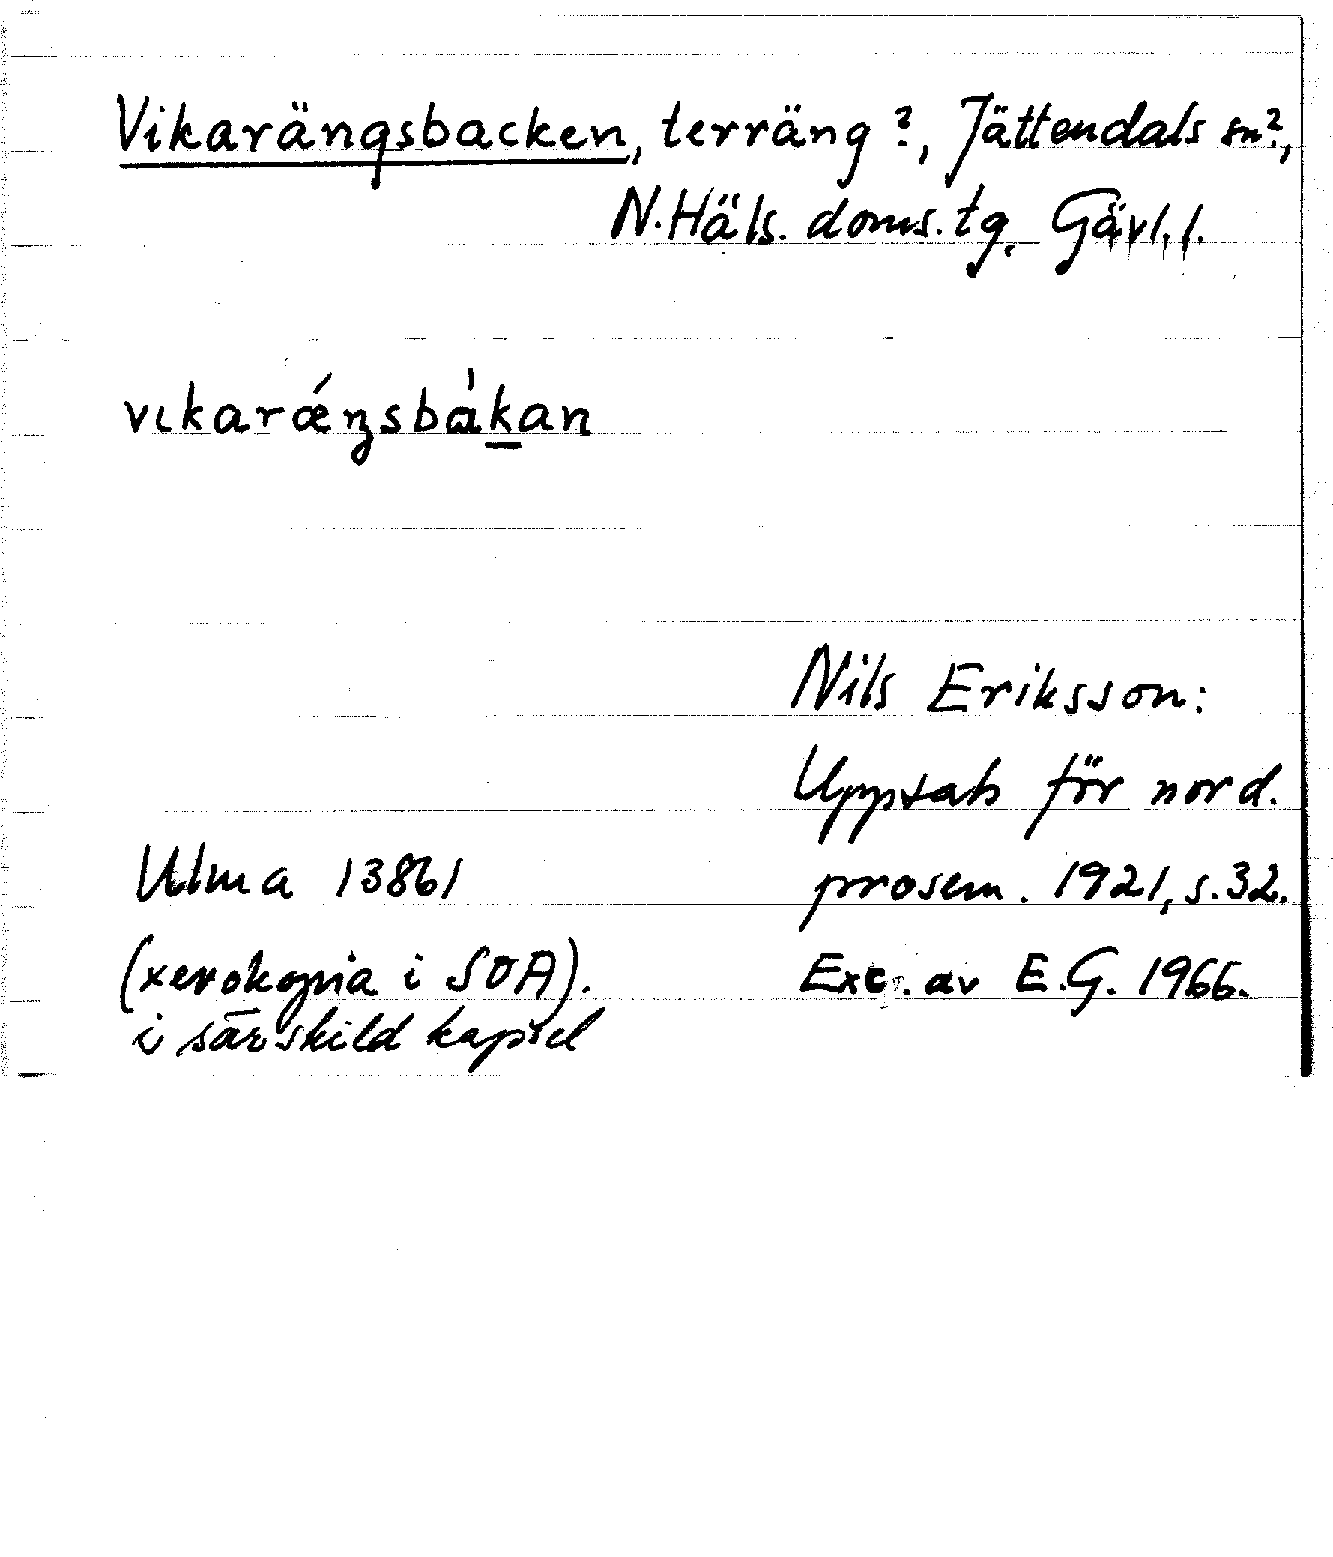 Vikarängsbacken, terräng?, Jättendals sn?,
N. Häls. doms. tg. Gävl. l.
vıkarǽŋsbàk̲an
Nils Eriksson:
Uppsats för nord.
prosem. 1921, s. 32.
Exc. av E.G. 1966.
Ulma 13861
(xerokopia i SOA).
i särskild kapsel